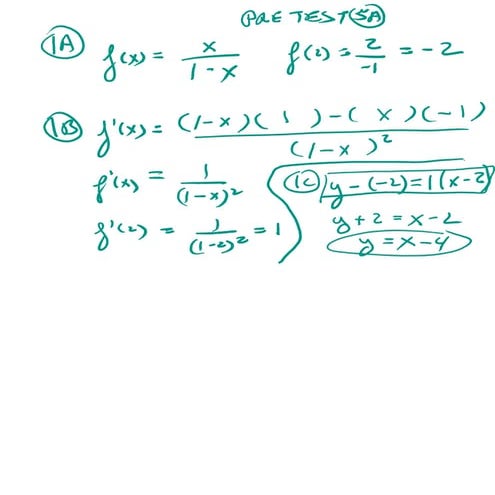 PRE TEST 5A
1A f(x) = x/(1-x) f(2) = 2/-1 = -2
1B f'(x) = ((1-x)(1) - (x)(-1))/(1-x)^2
f'(x) = 1/(1-x)^2
f'(2) = 1/(1-2)^2 = 1
1C y-(-2)=1(x-2)
y+2=x-2
y=x-4